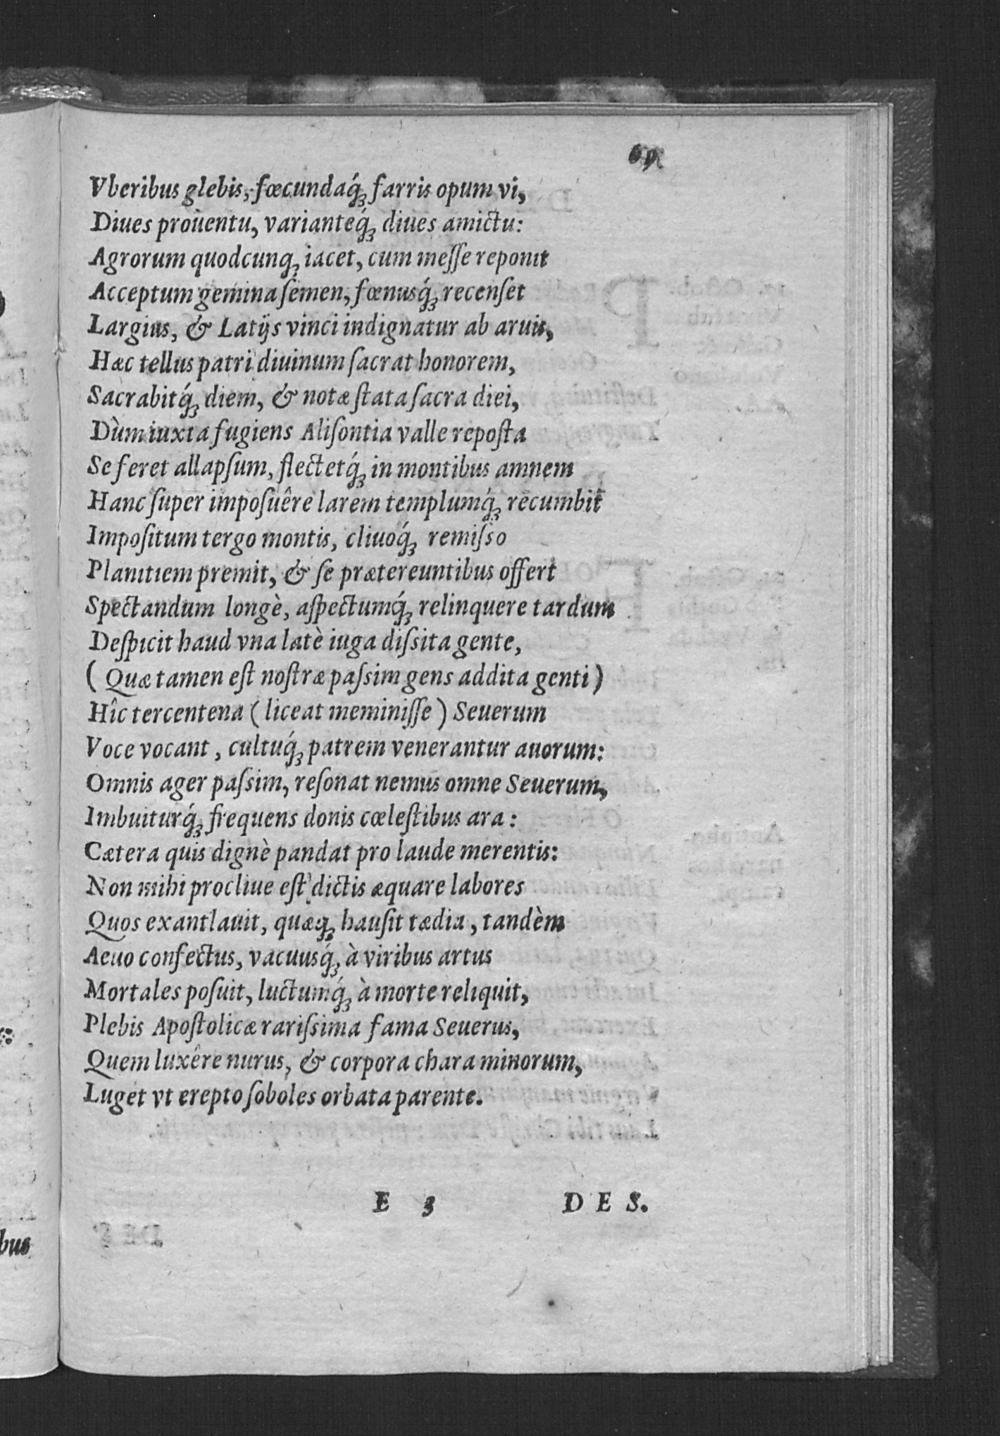 69
Vberibus glebis, fœcundaq́ꝫ farris opum vi,
Diues prouentu, varianteq́ꝫ diues amictu:
Agrorum quodcunqꝫ iacet, cum meſſe reponit
Acceptum gemina ſemen, fœnusq́ꝫ recenſet
Largius, & Latijs vinci indignatur ab aruis,
Hæc tellus patri diuinum ſacrat honorem,
Sacrabitq́ꝫ diem, & notæ ſtata ſacra diei,
Dùm iuxta fugiens Aliſontia valle repoſta
Se feret allapſum, flectetq́ꝫ in montibus amnem
Hanc ſuper impoſuêre larem templumq́ꝫ recumbit
Impoſitum tergo montis, cliuoq́ꝫ remiſſo
Planitiem premit, & ſe prætereuntibus offert
Spectandum longè, aſpectumq́ꝫ relinquere tardum
Deſpicit haud vna latè iuga diſsita gente,
( Quæ tamen eſt noſtræ paſsim gens addita genti )
Hîc tercentena ( liceat meminiſſe ) Seuerum
Voce vocant, cultuq́ꝫ patrem venerantur auorum:
Omnis ager paſsim, reſonat nemus omne Seuerum,
Imbuiturq́ꝫ frequens donis cœleſtibus ara :
Cætera quis dignè pandat pro laude merentis:
Non mihi procliue eſt dictis æquare labores
Quos exantlauit, quæqꝫ hauſit tædia, tandèm
Aeuo confectus, vacuusq́ꝫ à viribus artus
Mortales poſuit, luctumq́ꝫ à morte reliquit,
Plebis Apoſtolicæ rariſsima fama Seuerus,
Quem luxêre nurus, & corpora chara minorum,
Luget vt erepto ſoboles orbata parente.
E 3 DES.
bus